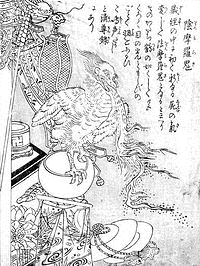 陰摩羅鬼
蔵経の中に初て新なる屍の気
変じて陰摩羅鬼となると云へり
そのかたち鶴の如くして
色くろく目の光ともしびの
ごとく羽をふるひて
鳴声たかし
と清尊録に
あり